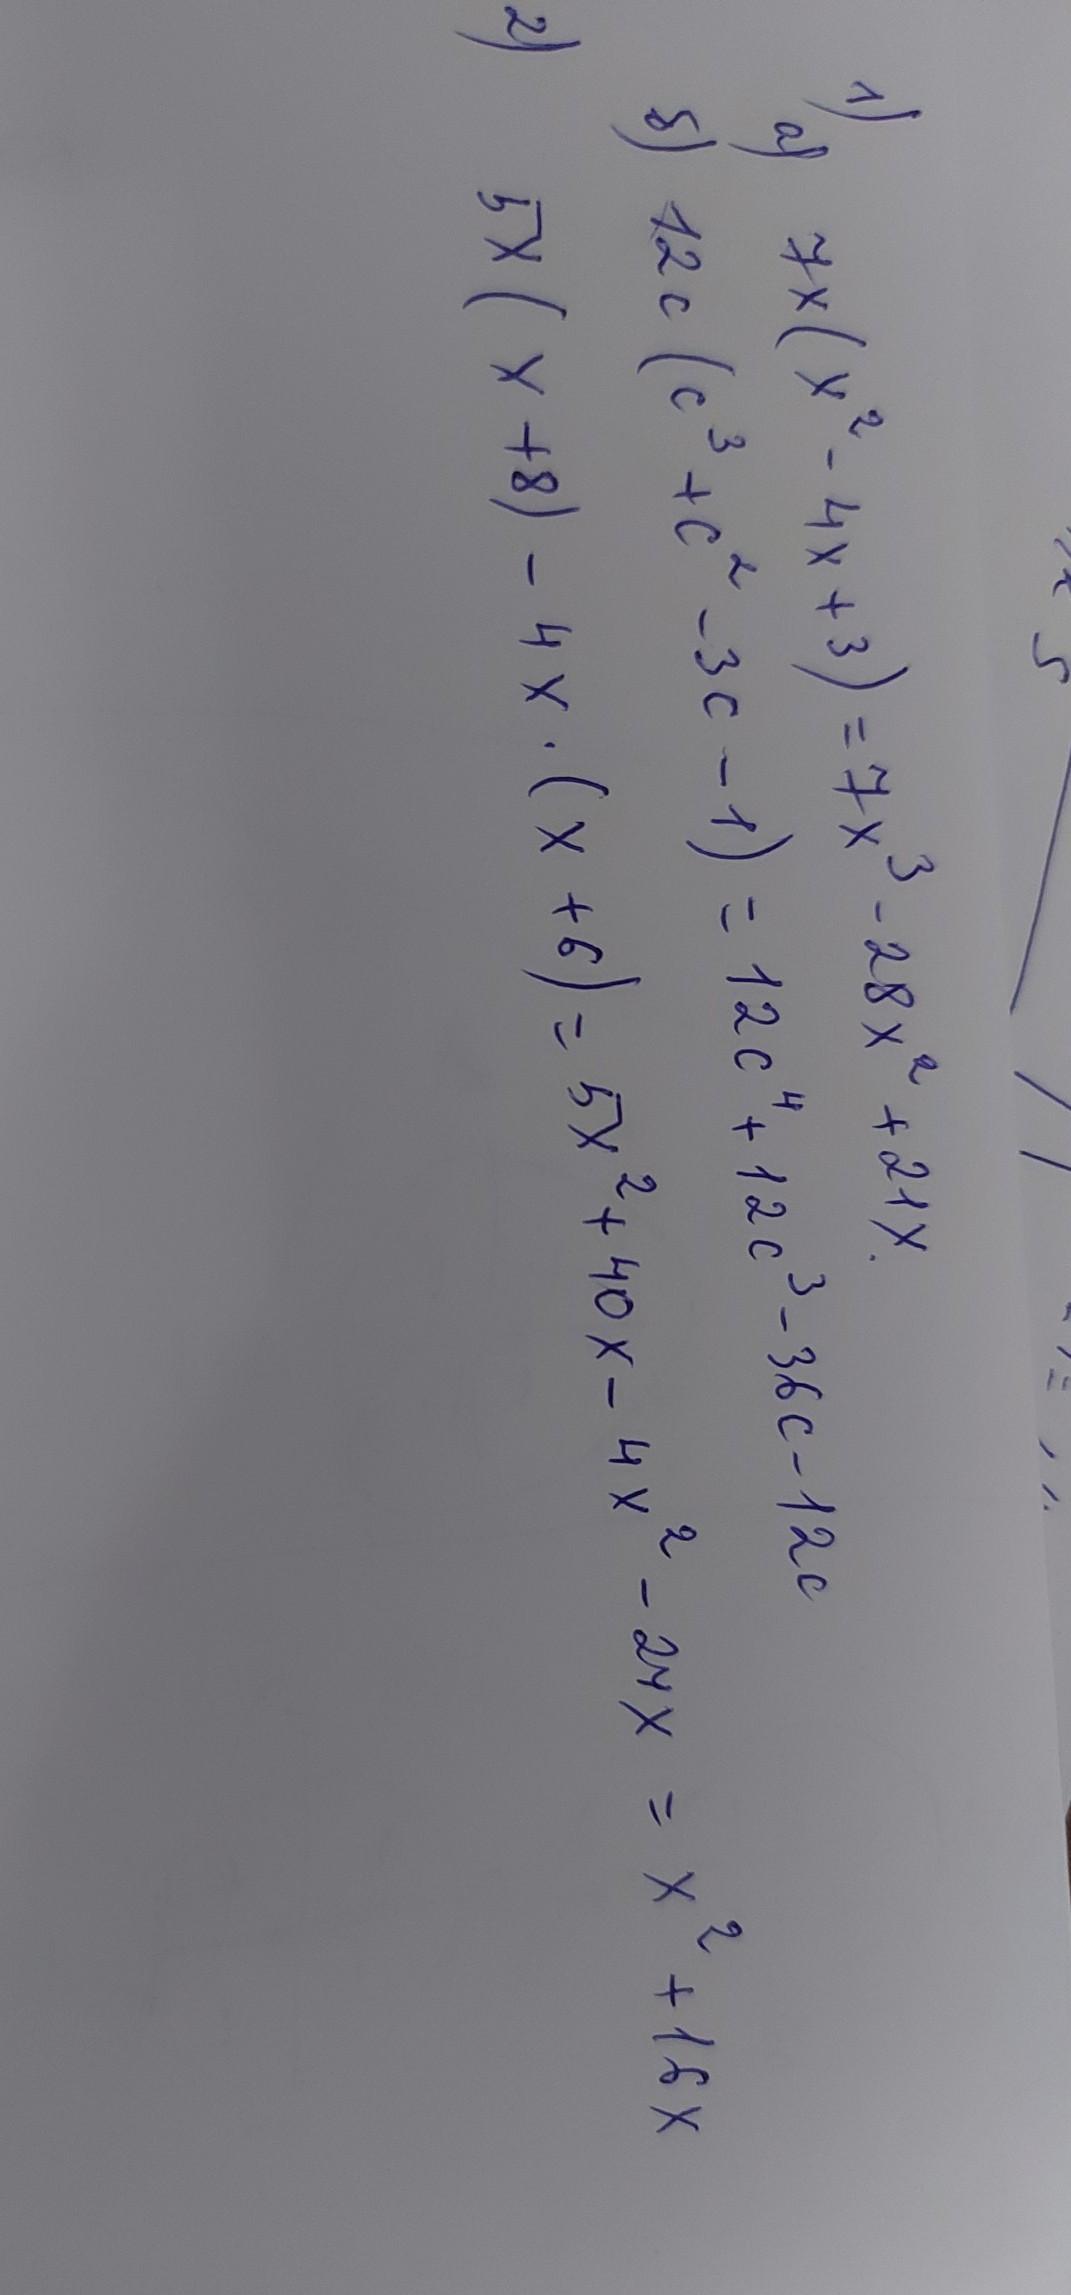 1)
а) 7x(x² - 4x + 3) = 7x³ - 28x² + 21x.
б) 12c (c³ + c² - 3c - 1) = 12c⁴ + 12c³ - 36c - 12c
2) 5x( x + 8) - 4x · (x + 6) = 5x² + 40x - 4x² - 24x = x² + 16x